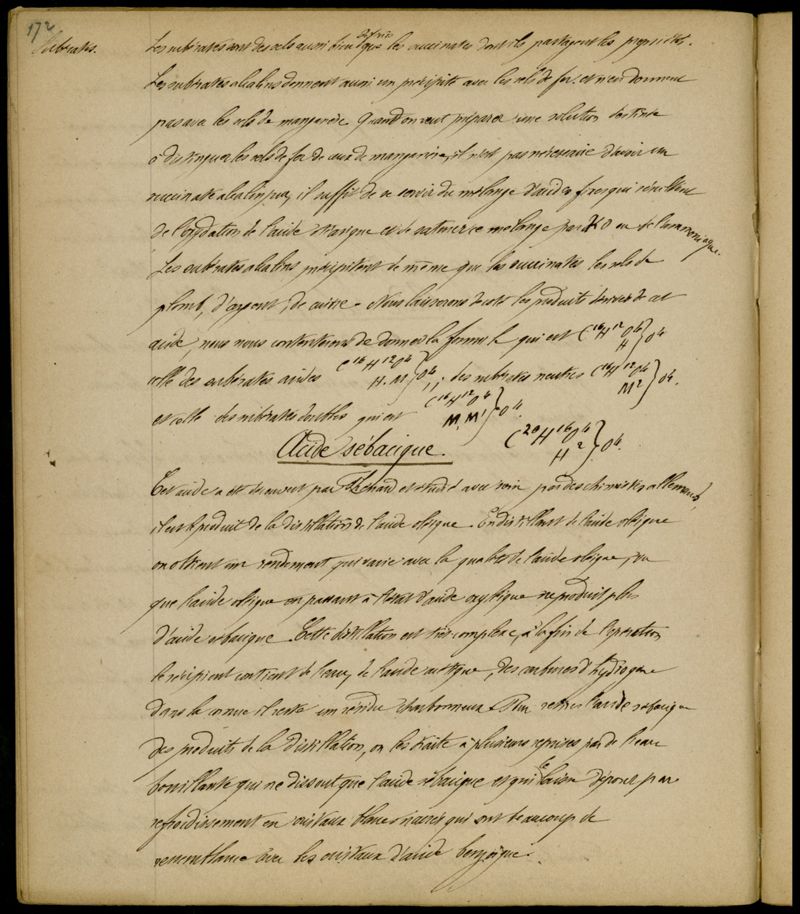 172
Subérates.
Les subérates sont des sels aussi bien définis que les succinates dont ils partagent les propriétés.
Les subérates alcalins donnent aussi un précipité avec les sels de fer et n'en donnent
pas avec les sels de manganèse. Quand on veut préparer une solution destinée
à distinguer les sels de fer de ceux de manganèse, il n'est pas nécessaire d'avoir un
succinate alcalin pur, il suffit de se servir du mélange d'acides qui résultent
de l'oxydation de l'acide et de saturer ce mélange par KO ou de l'ammoniaque.
Les subérates alcalins précipitent de même que les succinates les sels de
plomb, d'argent, de cuivre. Nous laisserons de côté les produits dérivés de cet
acide, nous nous contenterons de donner la formule qui est C16H12O4 H } O4
celle des subérates acides C16H12O4 H.M } O4, des subérates neutres C16H12O4 M2 } O4.
et celle des subérates doubles qui est C16H12O4 M,M' } O4.
Acide sébacique. C20H16O4 H2 } O4.
Cet acide a été découvert par Thénard et étudié avec soin par des chimistes allemands,
il est produit de la distillation de l'acide oléique. En distillant de l'acide oléique
on obtient un rendement qui varie avec la qualité de l'acide oléique, vu
que l'acide oléique en passant à l'état d'acide oxyoléique ne produit plus
d'acide sébacique. Cette distillation est très complexe, à la fin de l'opération
le récipient contient de l'eau, de l'acide acétique, des carbures d'hydrogène
dans la cornue il reste un résidu charbonneux. Pour retirer l'acide sébacique
des produits de la distillation, on les traite à plusieurs reprises par de l'eau
bouillante qui ne dissout que l'acide sébacique et qui le laisse déposer par
refroidissement en cristaux blancs nacrés qui ont beaucoup de
ressemblance avec les cristaux d'acide benzoïque.